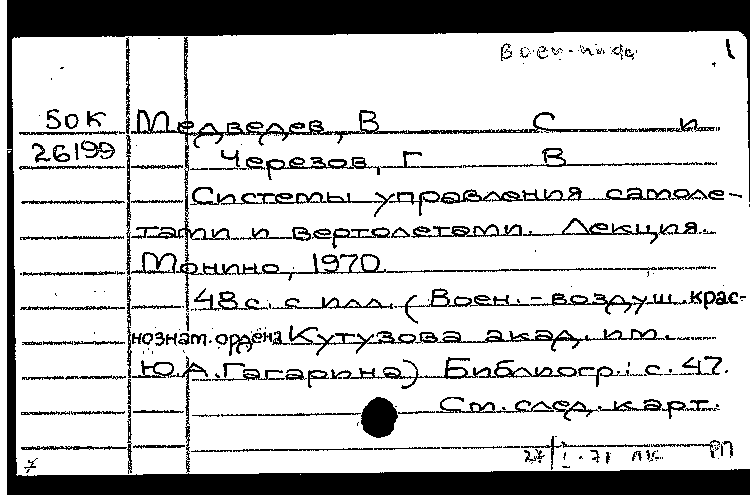 1
50К Медведев, В С и
26199 Черезов, Г В
Системы управления самоле-
тами и вертолетами. Лекция.
Монино, 1970.
48 с. с илл. (Воен.-воздуш. крас-
нознам. ордена Кутузова акад. им.
Ю.А.Гагарина) Библиогр.: с. 47.
См. след. карт.
27/I-71 РП